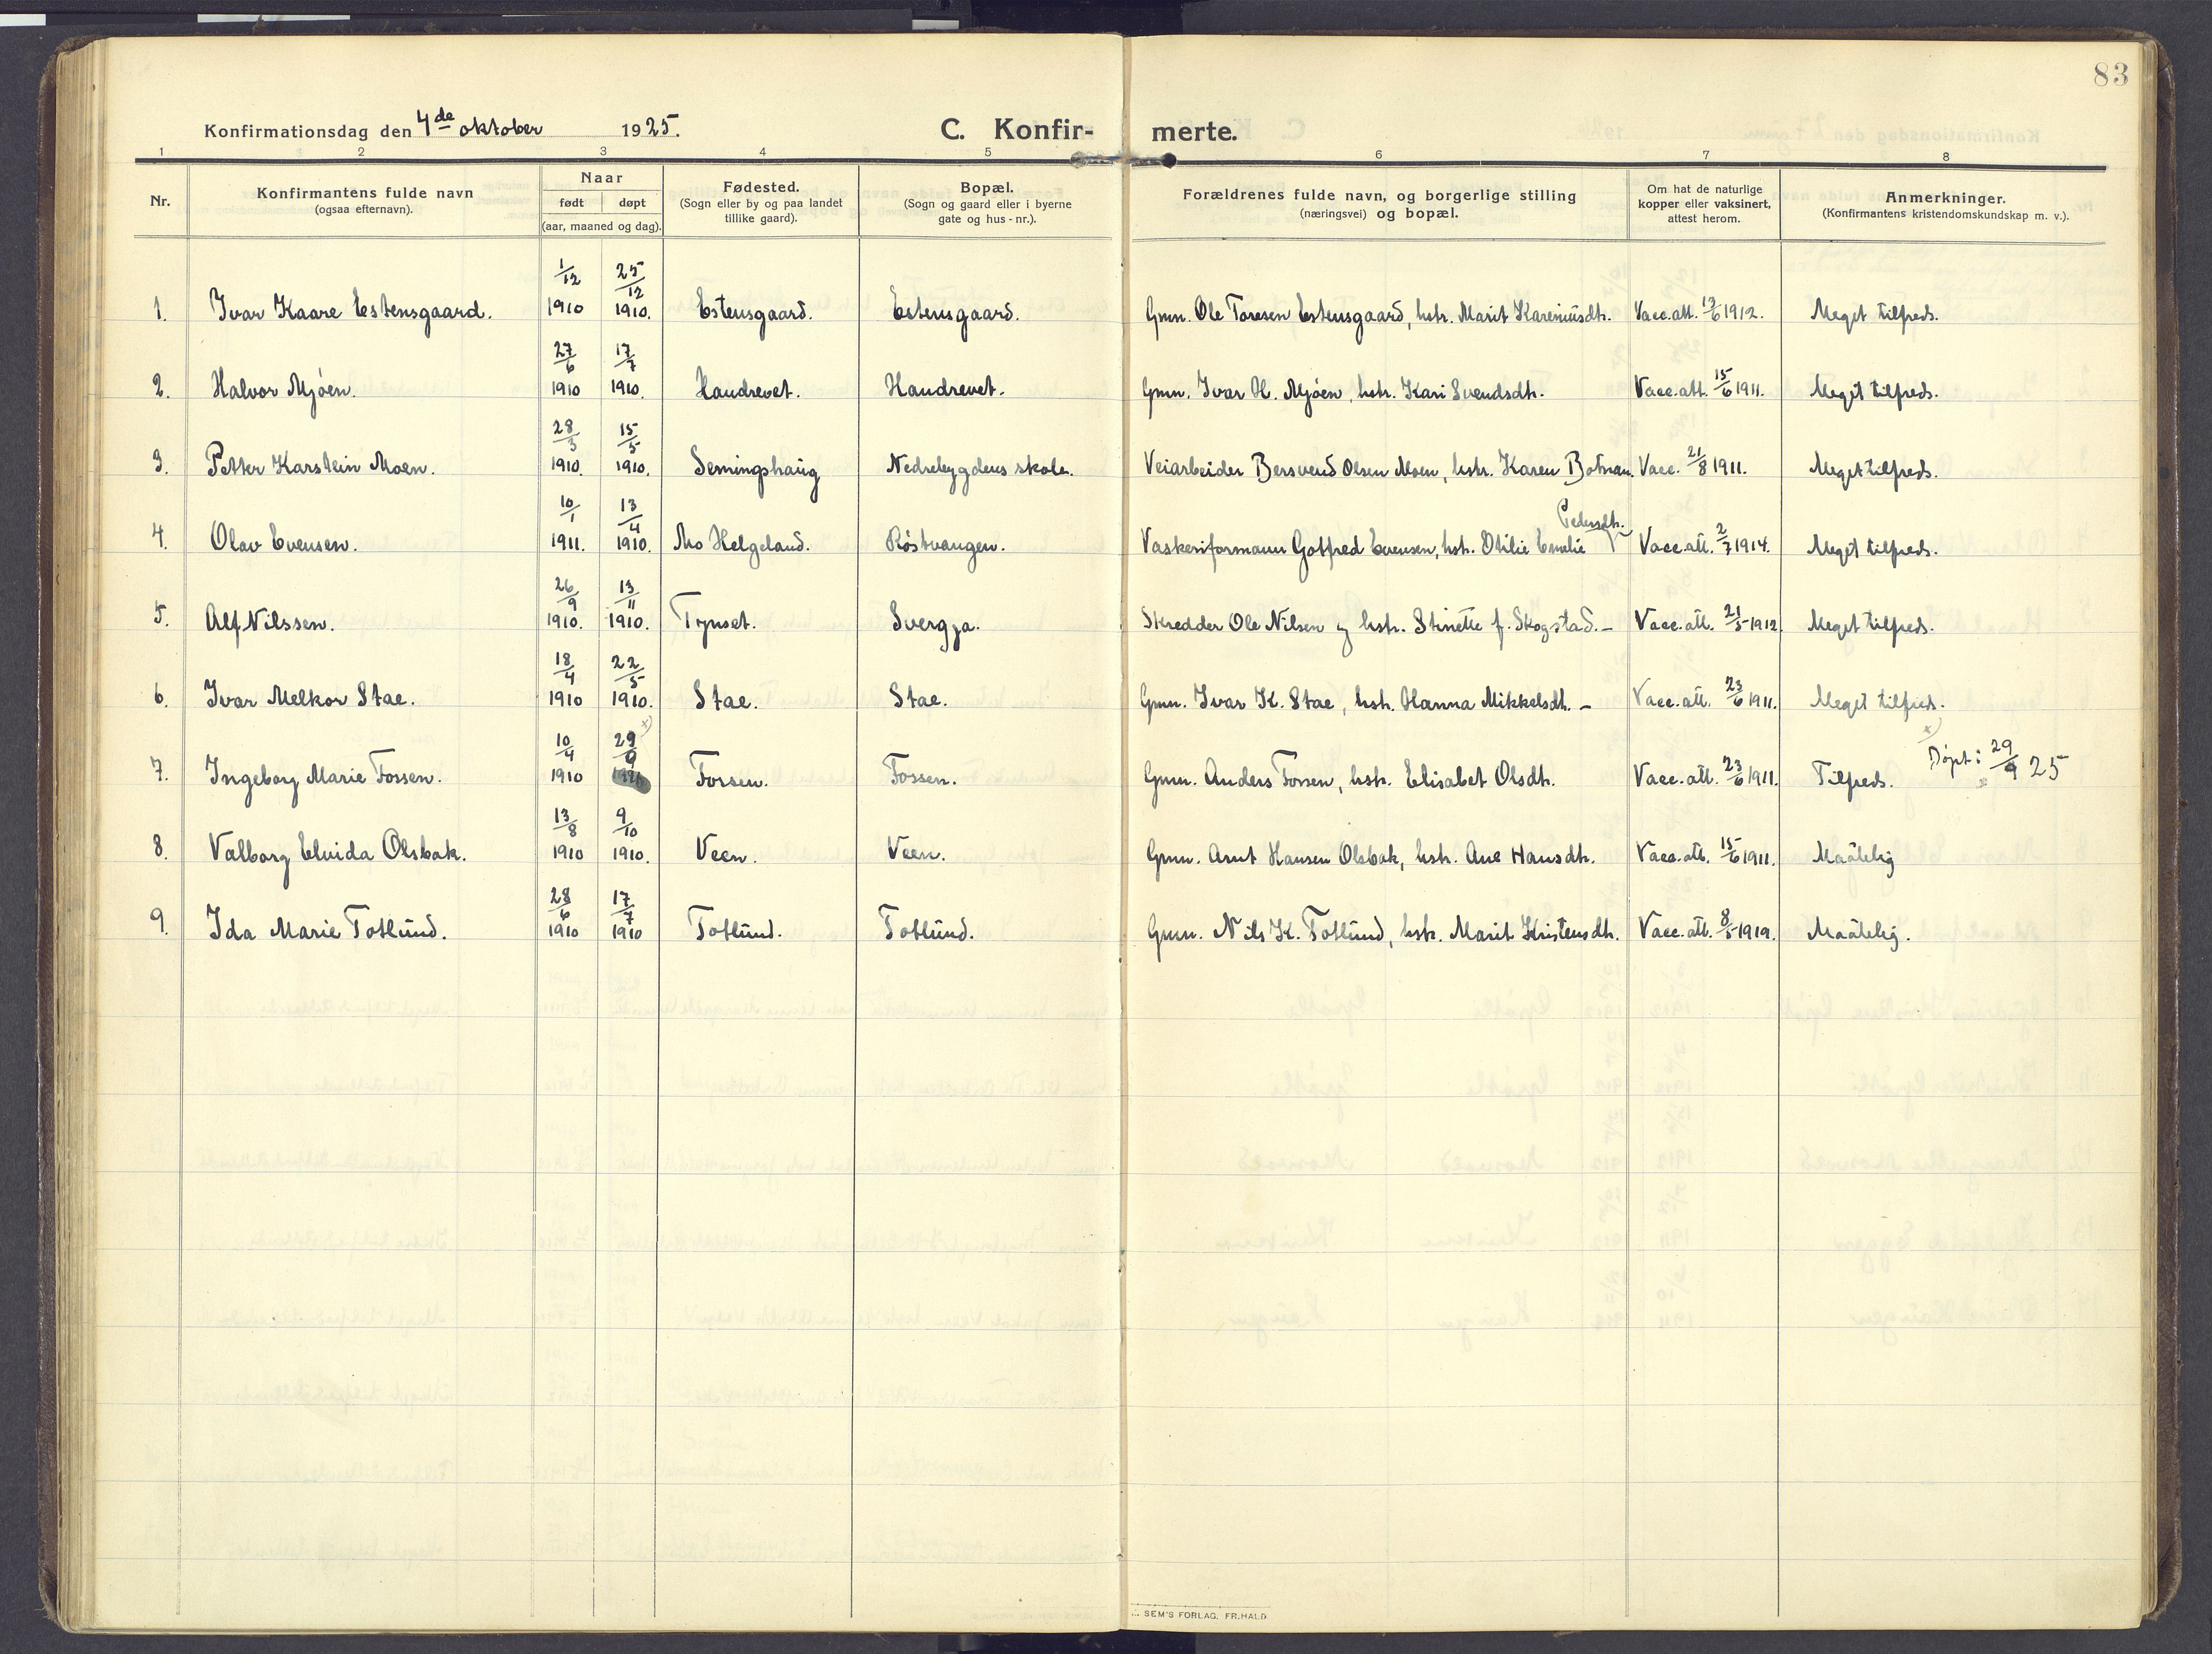 83
Konfirmationsdag den 4de oktober 1925. C. Konfir- merte.
1 2 3 4 5 6 7 8
Nr. Konfirmantens fulde navn (ogsaa efternavn). Naar født døpt (aar, maaned og dag). Fødested. (Sogn eller by og paa landet tillike gaard). Bopæl. (Sogn og gaard eller i byerne gate og hus-nr.). Forældrenes fulde navn, og borgerlige stilling (næringsvei) og bopæl. Om hat de naturlige kopper eller vaksinert, attest herom. Anmerkninger. (Konfirmantens kristendomskundskap m. v.).
1. Ivar Kaare Estensgaard. 1/12 1910 25/12 1910. Estensgaard. Estensgaard. Gmn. Ole Toresen Estensgaard, hstr. Marit Kareniusdtr. Vacc.att. 13/6 1912. Meget tilfreds.
2. Halvor Mjöen. 27/6 1910 17/7 1910. Haudrevet. Haudrevet. Gmn. Ivar H. Mjöen, hstr. Kari Svendsdtr. Vacc.att. 15/6 1911. Meget tilfreds.
3. Petter Karstein Moen. 28/3 1910. 15/5 1910. Semingshaug Nedrebygdens skole. Veiarbeider Bersvend Olsen Moen, hstr. Karen Botnan. Vacc. 21/8 1911. Meget tilfreds.
4. Olav Evensen. 10/1 1911. 13/4 1910. Mo Helgeland. Röstvangen. Vaskeriformann Gotfred Evensen, hstr. Otilie Emelie Pedersdtr. Vacc.att. 2/7 1914. Meget tilfreds.
5. Alf Nilssen. 26/9 1910. 13/11 1910. Tynset. Svergja. Skredder Ole Nilsen og hstr. Stinette f. Skogstad. – Vacc.att. 21/5 1912 Meget tilfreds.
6. Ivar Melkor Stae. 18/4 1910 22/5 1910. Stae. Stae. Gmn. Ivar K. Stae, hstr. Hanna Mikkelsdtr. – Vacc.att. 23/6 1911. Meget tilfreds.
7. Ingeborg Marie Fossen. 10/4 1910 29/9 x) Fossen. Fossen. Gmn. Anders Fossen, hstr. Elisabet Olsdtr. Vacc.att. 23/6 1911. Tilfreds. x) Döpt: 29/9 25
8. Valborg Elvida Olsbak. 13/8 1910 9/10 1910. Veen. Veen. Gmn. Arnt Hansen Olsbak, hstr. Ane Hansdtr. Vacc.att. 15/6 1911. Maåtelig
9. Ida Marie Totlund. 28/6 1910 17/7 1910 Totlund. Totlund. Gmn. Nils K. Totlund, hstr. Marit Kristensdtr. Vacc.att. 8/5 1919. Maåtelig.
SEM'S FORLAG, FR.HALD